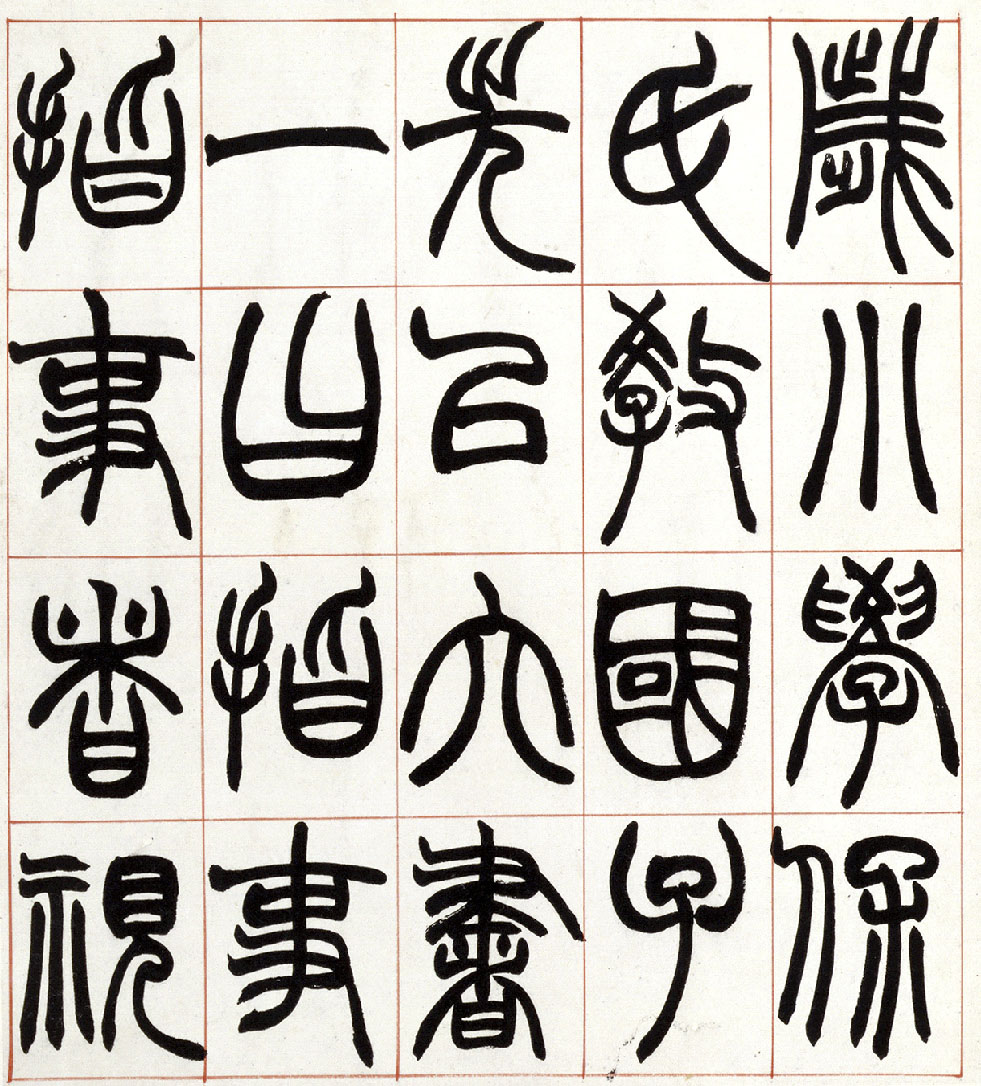 歲小學保
氏教國子
先以六書
一曰指事
指事者視